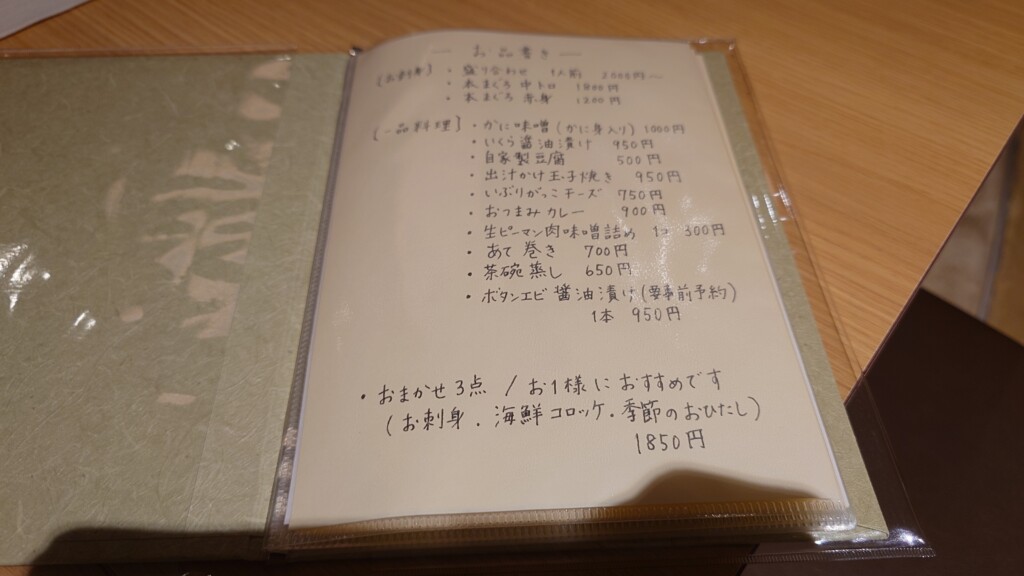 ー お品書き ー
[お刺身] ・盛り合わせ 1人前 2000円〜
・本まぐろ 中トロ 1800円
・本まぐろ 赤身 1200円
[一品料理] ・かに味噌(かに身入り) 1000円
・いくら醤油漬け 950円
・自家製豆腐 500円
・出汁かけ玉子焼き 950円
・いぶりがっこチーズ 750円
・おつまみカレー 900円
・生ピーマン肉味噌詰め 1コ 300円
・あて巻き 700円
・茶碗蒸し 650円
・ボタンエビ醤油漬け(要事前予約)
1本 950円
・おまかせ3点 / お1様におすすめです
(お刺身.海鮮コロッケ.季節のおひたし)
1850円